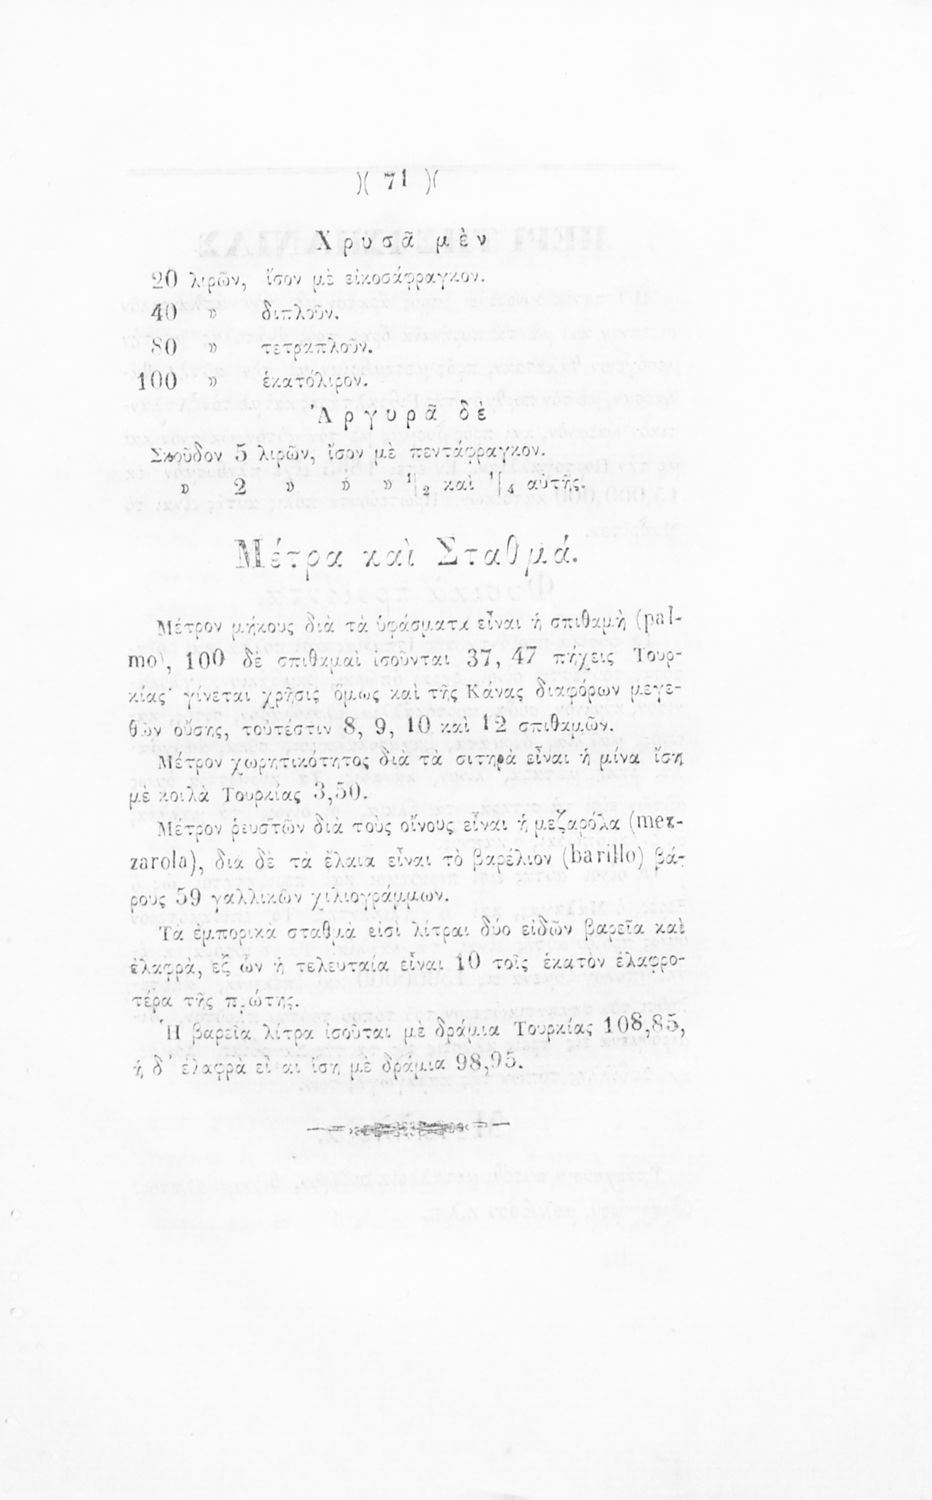 )( 71 )(
Χρυσᾶ μὲν
20 λιρῶν, ἴσον μὲ εἰκοσάφραγκον.
40 » διπλοῦν.
80 » τετραπλοῦν.
100 » ἑκατόλιρον.
Ἀργυρᾶ δὲ
Σκοῦδον 5 λιρῶν, ἴσον μὲ πεντάφραγκον.
» 2 » » » 1/2 καὶ 1/4 αὐτῆς.
Μέτρα καὶ Σταθμά.
Μέτρον μήκους διὰ τὰ ὑφάσματα εἶναι ἡ σπιθαμὴ (pal-
mo), 100 δὲ σπιθαμαὶ ἰσοῦνται 37, 47 πήχεις Τουρ-
κίας· γίνεται χρῆσις ὅμως καὶ τῆς Κάνας διαφόρων μεγε-
θῶν οὔσης, τοὐτέστιν 8, 9, 10 καὶ 12 σπιθαμῶν.
Μέτρον χωρητικότητος διὰ τὰ σιτηρὰ εἶναι ἡ μίνα ἴση
μὲ κοιλὰ Τουρκίας 3,50.
Μέτρον ῥευστῶν διὰ τοὺς οἴνους εἶναι ἡ μεζαρόλα (mez-
zarola), διὰ δὲ τὰ ἔλαια εἶναι τὸ βαρέλιον (barillo) βά-
ρους 59 γαλλικῶν χιλιογράμμων.
Τὰ ἐμπορικὰ σταθμὰ εἰσὶ λίτραι δύο εἰδῶν βαρεῖα καὶ
ἐλαφρὰ, ἐξ ὧν ἡ τελευταία εἶναι 10 τοῖς ἑκατὸν ἐλαφρο-
τέρα τῆς πρώτης.
Ἡ βαρεῖα λίτρα ἰσοῦται μὲ δράμια Τουρκίας 108,85,
ἡ δ' ἐλαφρὰ εἶναι ἴση μὲ δράμια 98,95.